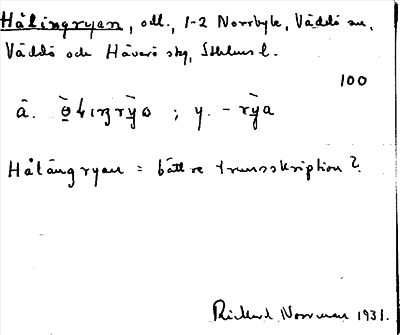 Hålingryan, odl., 1-2 Norrbyle, Väddö sn,
Väddö och Häverö skg, Sthlms l.
100
ä. ; y. - rya
Hålängryan = bättre transskription?
Rickard Norrman 1931.